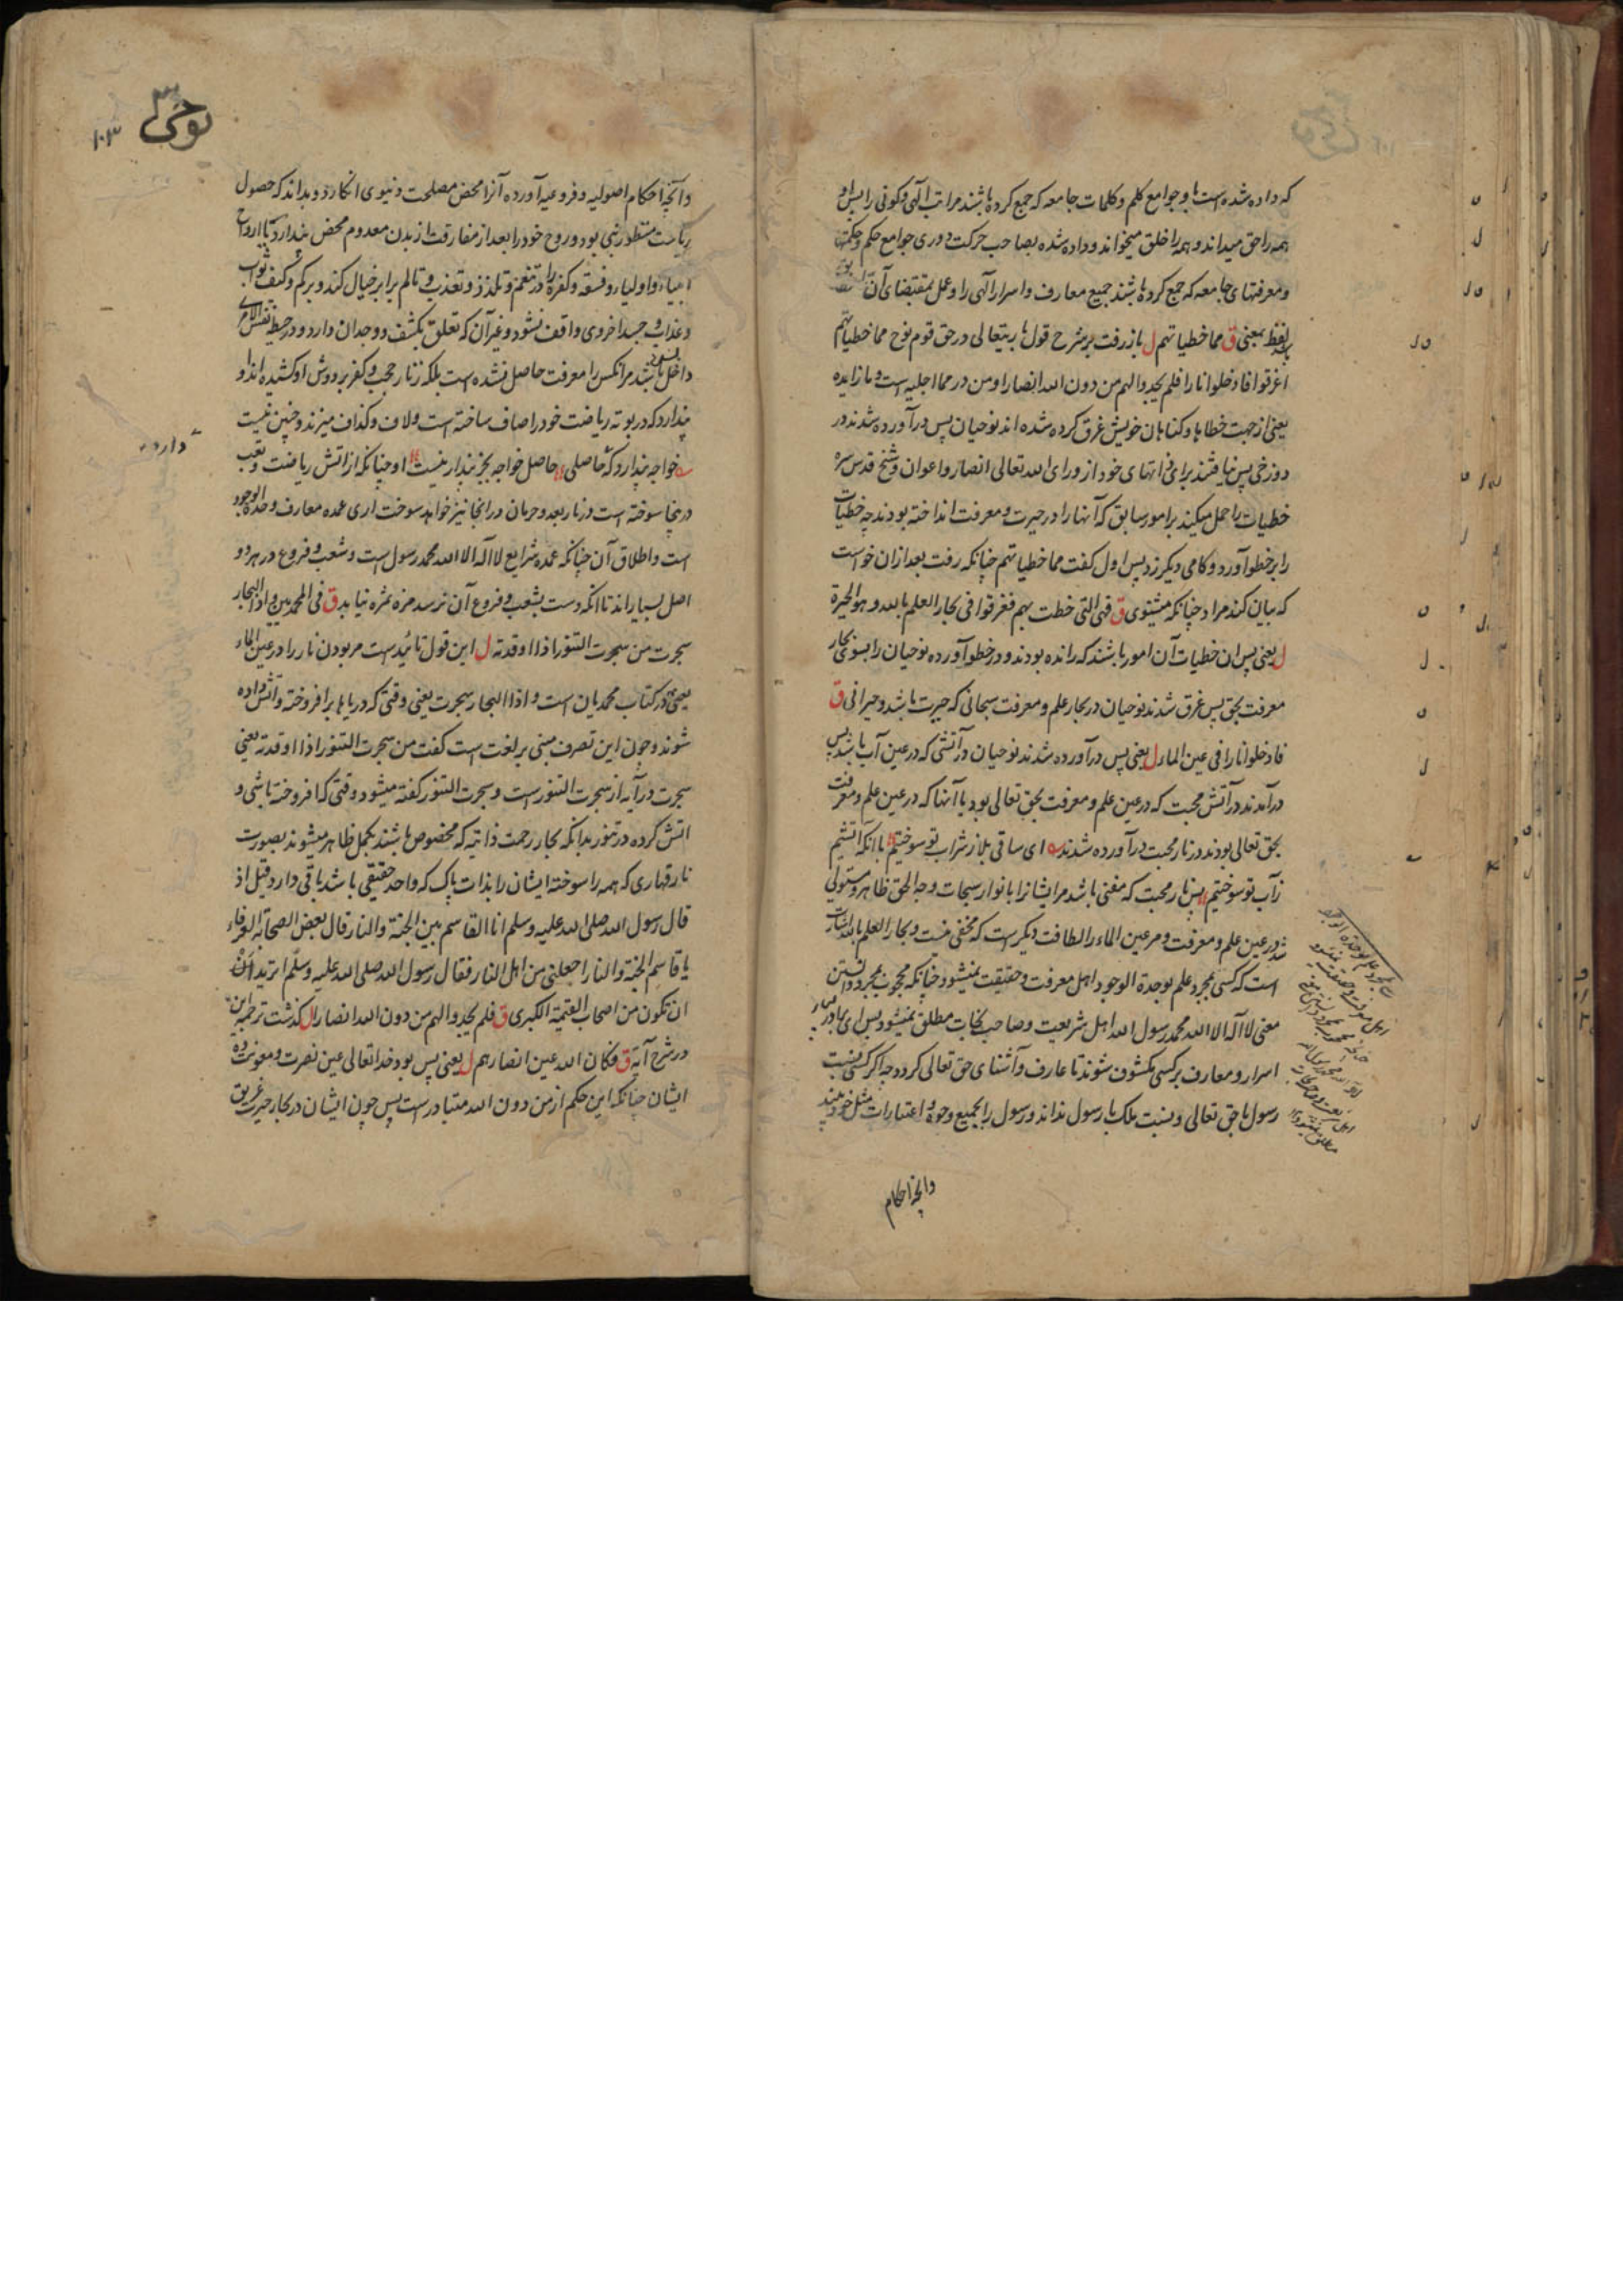 که داده شده است باو جوامع کلم و کلمات جامعه که جمع کرده باشند مراتب الهی و کونی را پس او
همه را حق میداند و همه را خلق میخواند و داده شده بصاحب حرکت دوری جوامع حکم و حکمتها
و معرفتهای جامعه که جمع کرده باشند جمیع معارف و اسرار الهی را و عمل بمقتضای آن
لفظ بمعنی ق مما خطیاتهم ل باز رفت بر شرح قول باریتعالی در حق قوم نوح مما خطیاتهم
اغرقوا فادخلوا نارا فلم یجدوا لهم من دون الله انصارا و من در مما اجلیه است و ما زایده
یعنی از جهت خطاها و کناهان خویش غرق کرده شده اند نوحیان پس درآورده شدند در
دوزخی پس نیافتند برای ذاتهای خود از ورای الله تعالی انصار و اعوان و شیخ قدس سره
خطیات را حمل میکند بر امور سابق که آنها را در حیرت و معرفت انداخته بودند چه خطیات
را بر خطو آورد و کامی دیکر زد پس اول کفت مما خطیاتهم چنانکه رفت بعد ازان خواست
که بیان کند مراد چنانکه مثنوی ق فهی التی خطت بهم فغرقوا فی بحار العلم بالله و هو الحیرة
ل یعنی پس ان خطیات آن امور باشند که رانده بودند و در خطو آورده نوحیان را بسوی بحار
معرفت بحق پس غرق شدند نوحیان در بحار علم و معرفت سبحانی که حیرت باشد و حیرانی ق
فادخلوا نارا فی عین الماء ل یعنی پس درآورده شدند نوحیان در آتشی که در عین آب باشد پس
درآمدند در آتش محبت که در عین علم و معرفت بحق تعالی بود یا آنها که در عین علم و معرفت
بحق تعالی بودند در نار محبت درآورده شدند ای ساقی بلا ز شراب تو سوختیم با انکه آتشیم
ز آب تو سوختیم پس نار محبت که مفنی باشد مر ایشانرا بانوار سبحات وجه الحق ظاهر و مستولی
شد در عین علم و معرفت و مر عین الماء را لطافت دیکر است که مخفی نیست و بحار العلم بالله اشارت
است که کسی بمجرد علم بوحدة الوجود اهل معرفت و حقیقت نمیشود چنانکه محجوب بمجرد دانستن
معنی لا اله الا الله محمد رسول الله اهل شریعت و صاحب نجات مطلق نمیشود پس ای برادر
اسرار و معارف بر کسی مکشوف شوند تا عارف و آشنای حق تعالی کردد چه اکر کسی نسبت
رسول با حق تعالی و نسبت ملک با رسول نداند و رسول را بجمیع وجوه و اعتبارات مثل خود بیند
وآنچه احکام
نوحی
۱۰۳
وآنچه احکام اصولیه و فروعیه آورده آنرا محض مصلحت دنیوی انکارد و بداند که حصول
ریاست منظور نبی بود و روح خود را بعد از مفارقت از بدن معدوم محض پندارد یا ارواح
انبیاء و اولیاء و فسقه و کفره را در تنعم و تلذذ و تعذب و تالم برابر خیال کند و بر کم و کیف ثواب
و عذاب و جسد اخروی واقف نشود و غیر آن که تعلق بکشف و وجدان دارد و در حیطه نفس الامر
داخل باشد مر انکس را معرفت حاصل نشده است بلکه زنار حجب و کفر بر دوش او کشیده اند و او
پندارد که در بوته ریاضت خود را صاف ساخته است و لاف و کذاف میزند و چنین نیست
خواجه پندارد که حاصلی دارد حاصل خواجه بجز پندار نیست او چنانکه از اتش ریاضت و تعب
درینجا سوخته است در نار بعد و حرمان در انجا نیز خواهد سوخت اری عمده معارف وحدة الوجود
است و اطلاق آن چنانکه عمده شرایع لا اله الا الله محمد رسول است و شعب و فروع در هر دو
اصل بسیار اند تا انکه دست بشعب و فروع آن نرسد مزه ثمره نیابد ق فی المحمدیین و اذا البحار
سجرت من سجرت التنور اذا اوقدته ل این قول تائید است مر بودن نار را در عین الماء
یعنی در کتاب محمدیان است و اذا البحار سجرت یعنی وقتی که دریاها بر افروخته و آتش داده
شوند و چون این تصرف مبنی بر لغت است کفت من سجرت التنور اذا اوقدته یعنی
سجرت در آیه از سجرت التنور است و سجرت التنور کفته میشود وقتی که افروخته باشی و
اتش کرده در تنور بدانکه بحار رحمت ذاتیه که مخصوص باشند بکمل ظاهر میشوند بصورت
نار قهاری که همه را سوخته ایشان را بذات پاک که واحد حقیقی باشد باقی دارد قیل اذ
قال رسول الله صلی الله علیه و سلم انا القاسم بین الجنة و النار قال بعض الصحابه العرفاء
یا قاسم الجنة و النار اجعلنی من اهل النار فقال رسول الله صلی الله علیه و سلم ایرید
ان تکون من اصحاب القیمة الکبری ق فلم یجدوا لهم من دون الله انصارا ل کذشت ترجمه این
در شرح آیه ق فکان الله عین انصارهم ل یعنی پس بود خدا تعالی عین نصرت و معونت ده
ایشان چنانکه این حکم از من دون الله متبادر است پس چون ایشان در بحار حیرت غریق
دارد